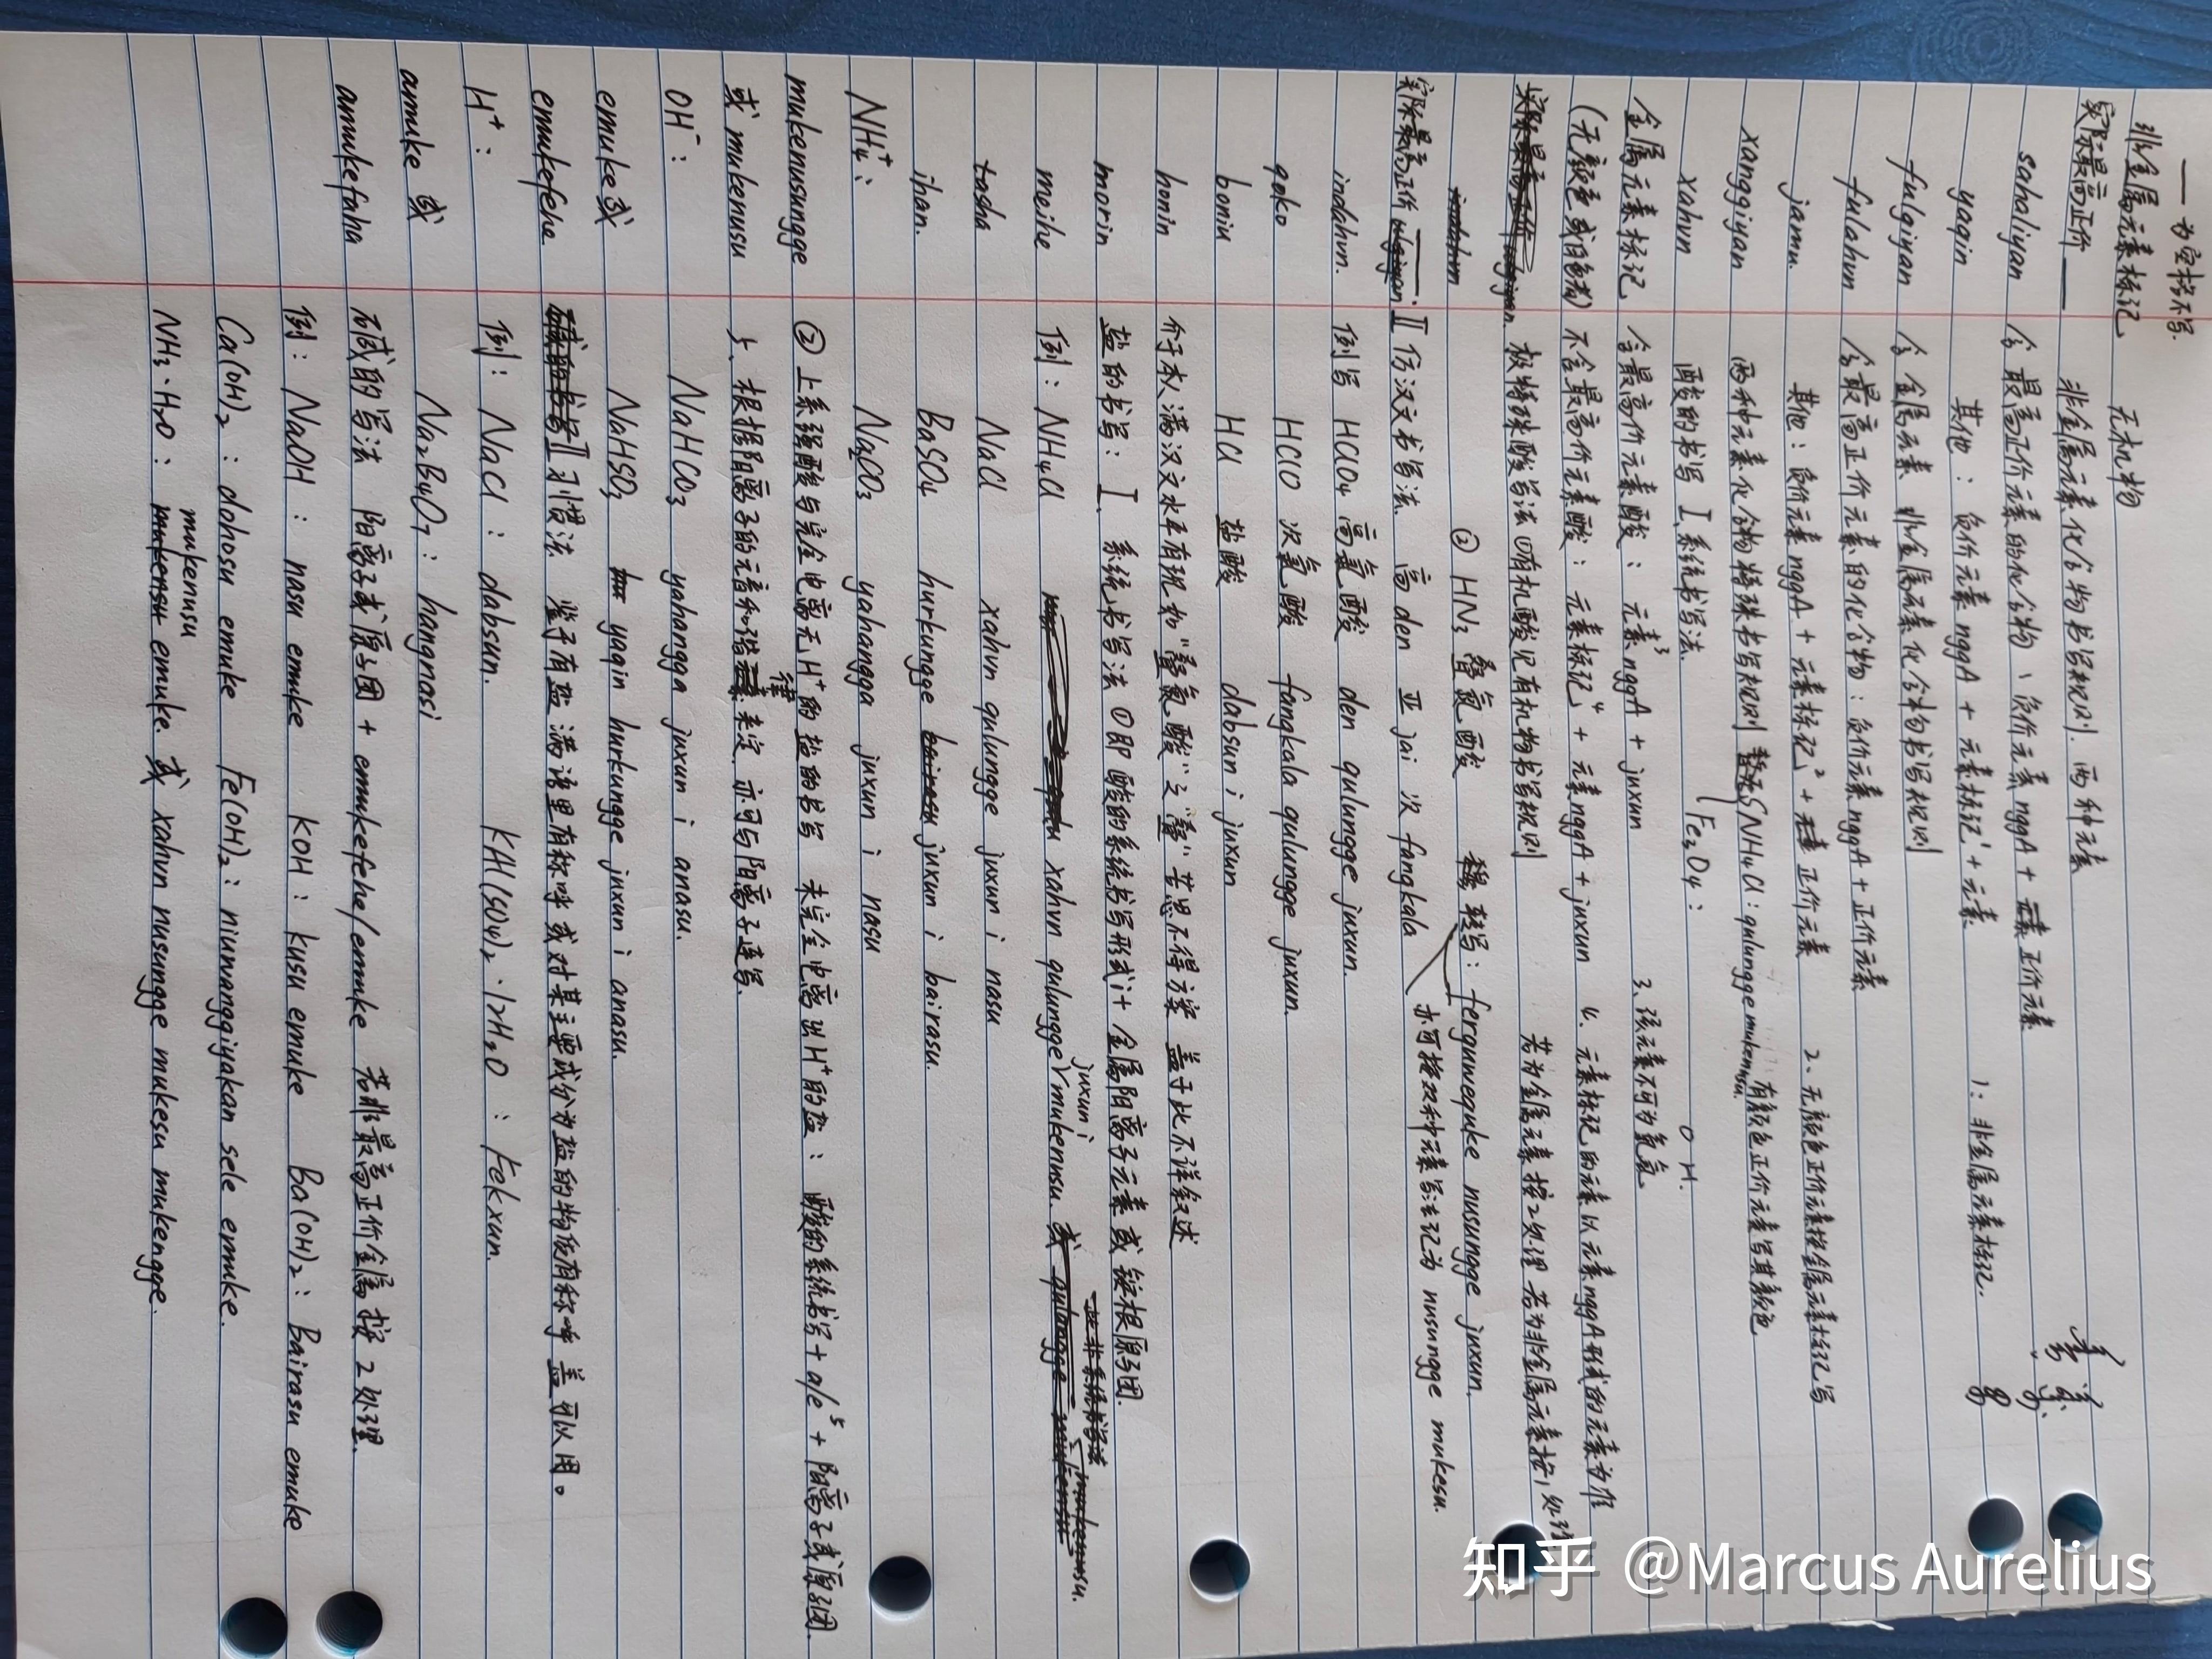 ——为空格不写
非金属元素标记 无机物
实际最高正价—— 非金属元素化合物书写规则. 两种元素
sahaliyan 含最高正价元素的化合物、负价元素nggA + 正价元素
yaqin 其他: 负价元素nggA + 元素标记¹ + 元素 1: 非金属元素标记.
fulgiyan 含金属元素 非金属元素化合物书写规则
fulahun 含最高正价元素的化合物: 负价元素nggA + 正价元素
jamu. 其他: 负价元素nggA + 元素标记² + 正价元素 2、无颜色正价元素按金属元素标记写
xanggiyan 两种元素化合物特殊书写规则 NH₄Cl: qulungge mukenusu. 有颜色正价元素写其颜色
xahun 酸的书写 I.系统书写法. Fe₃O₄: O H.
金属元素标记 含最高价元素酸: 元素³nggA + juxun 3、该元素不可为氢氧
(无颜色或白色者) 不含最高价元素酸: 元素标记⁴ + 元素nggA + juxun 4、元素标记的元素以元素nggA形式的元素为准
极特殊酸写法①有机酸见有机物书写规则 若为金属元素按2处理 若为非金属元素按1处理
② HN₃ 叠氮酸 转写: ferguwequke nusungge juxun.
实际最高正价—— II 仿汉文书写法. 高 den 亚 jai 次 fangkala 亦可按双种元素写法记为 nusungge mukesu.
indahun. 例写 HClO₄ 高氯酸 den qulungge juxun.
qoko HClO 次氯酸 fangkala qulungge juxun.
boniu HCl 盐酸 dabsun i juxun
honin 介于本人满汉文水平有现如"叠氮酸"之"叠"苦思不得方案 盖于此不详叙述
morin 盐的书写: I、系统书写法 ①即酸的系统书写形式i + 金属阳离子元素或铵根原子团.
meihe 例: NH₄Cl xahun qulungge juxun i mukenusu.
tasha NaCl xahun qulungge juxun i nasu
ihan. BaSO₄ hurkungge juxun i bairasu.
NH₄⁺: Na₂CO₃ yahangga juxun i nasu
mukenusungge ② 上系强酸与完全电离无H⁺的盐的书写 未完全电离出H⁺的盐: 酸的系统书写 + a/e⁵ + 阳离子或原子团.
或 mukenusu 5、根据阳离子的元音和谐律来定, 亦可与阳离子连写.
OH⁻: NaHCO₃ yahangga juxun i anasu.
emuke或 NaHSO₃ yaqin hurkungge juxun i anasu.
emukefehe II 习惯法 鉴于有盐满语里有称呼或对某主要成分为盐的物质有称呼 盖可以用。
H⁺: 例: NaCl: dabsun. KAl(SO₄)₂·12H₂O: Fekxun.
amuke 或 Na₂B₄O₇: hangnasi
amukefaha 碱的写法 阳离子或原子团 + emukefehe/emuke 若非最高正价金属按2处理.
例: NaOH: nasu emuke KOH: kusu emuke Ba(OH)₂: Bairasu emuke
Ca(OH)₂: dohosu emuke Fe(OH)₂: niuwanggiyakan sele emuke.
NH₃·H₂O: mukenusu emuke. 或 xahun nusungge mukesu mukengge.
知乎 @Marcus Aurelius